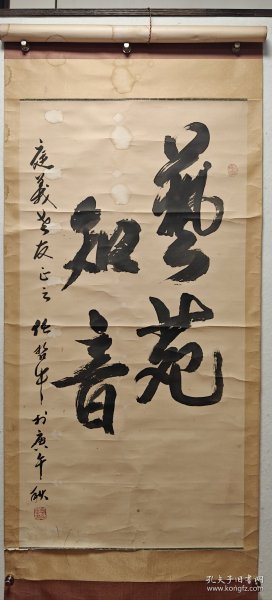 藝苑
知音
庭義老友正之 任哲中 於庚午秋
孔夫子旧书网